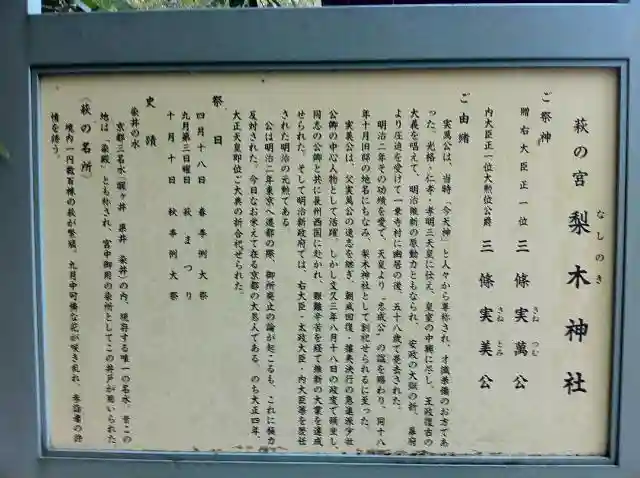 萩の宮 梨木神社
なしのき
ご祭神
贈右大臣正一位 三條実萬公
さねつむ
内大臣正一位大勲位公爵 三條実美公
さねとみ
ご由緒
実萬公は、当時「今天神」と人々から尊称され、才識兼備のお方であ
った。光格・仁孝・孝明三天皇に仕え、皇室の中興に尽し、王政復古の
大義を唱えて、明治維新の原動力ともなられ、安政の大獄の折、幕府
より圧迫を受けて一乗寺村に幽居の後、五十八歳で薨去された。
明治二年その功績を愛で、天皇より「忠成公」の諡を賜わり、同十八
年十月旧邸の地名にちなみ、梨木神社として創祀せられるに至った。
実美公は、父実萬公の遺志を継ぎ、朝威回復・攘夷決行の急進派少壮
公卿の中心人物として活躍。しかし文久三年八月十八日の政変で頓坐し
同志の公卿と共に長州西国に赴かれ、艱難辛苦を経て維新の大業を達成
せられた。そして明治新政府では、右大臣・太政大臣・内大臣等を歴任
された明治の元勲である
公は明治二年東京へ遷都の際、御所廃止の論が起こるも、これに極力
反対された。今日なお栄えて在る京都の大恩人である。のち大正四年、
大正天皇即位ご大典の折合祀せられた。
祭日
四月十八日 春季例大祭
九月第三日曜日 萩まつり
十月十日 秋季例大祭
史蹟
染井の水
京都三名水（醒ヶ井 県井 染井）の内、現存する唯一の名水。昔この
地は、「染殿」とも称され、宮中御用の染所としてこの井戸が用いられた。
（萩の名所）
境内一円数百株の萩が繁殖。九月中可憐な花が咲き乱れ、参詣者の詩
情を誘う。